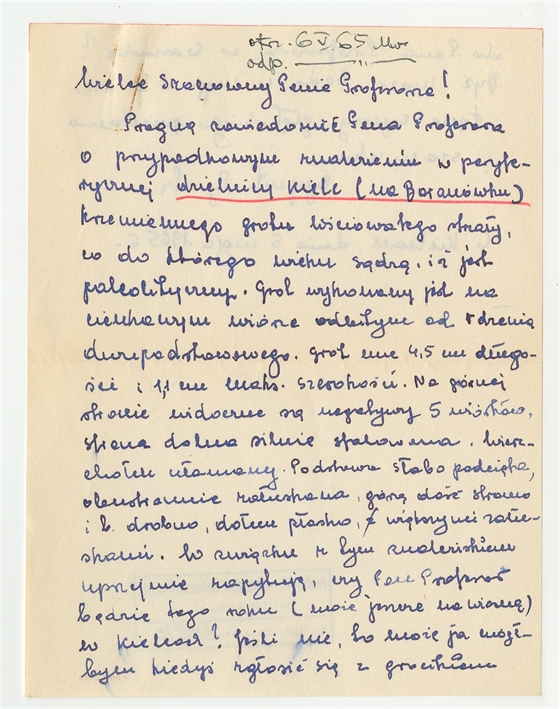 otrz. 6 V. 65
odp.
Wielce Szanowny Panie Profesorze!
Pragnę zawiadomić Pana Profesora
o przypadkowym znalezieniu w peryfe-
rycznej dzielnicy Kielc (na Baranówku)
krzemiennego grotu liściowatego strzały,
co do którego wieku sądzę, iż jest
paleolityczny. Grot wykonany jest na
cienkawym wiórze odbitym od rdzenia
dwupodstawowego. Grot ma 4,5 cm długo-
ści i 1,1 cm maks. szerokości. Na górnej
stronie widoczne są negatywy 5 wiórków,
strona dolna silnie spatynowana. Wierz-
chołek ułamany. Podstawa słabo podcięta,
obustronnie załuskana, górą dość stromo
i b. drobno, dołem płasko, z większymi zału-
skami. W związku z tym znaleziskiem
uprzejmie zapytuję, czy Pan Profesor
będzie tego roku (może jeszcze na wiosnę)
w Kielcach? Jeśli nie, to może ja mógł-
bym kiedyś zgłosić się z grocikiem